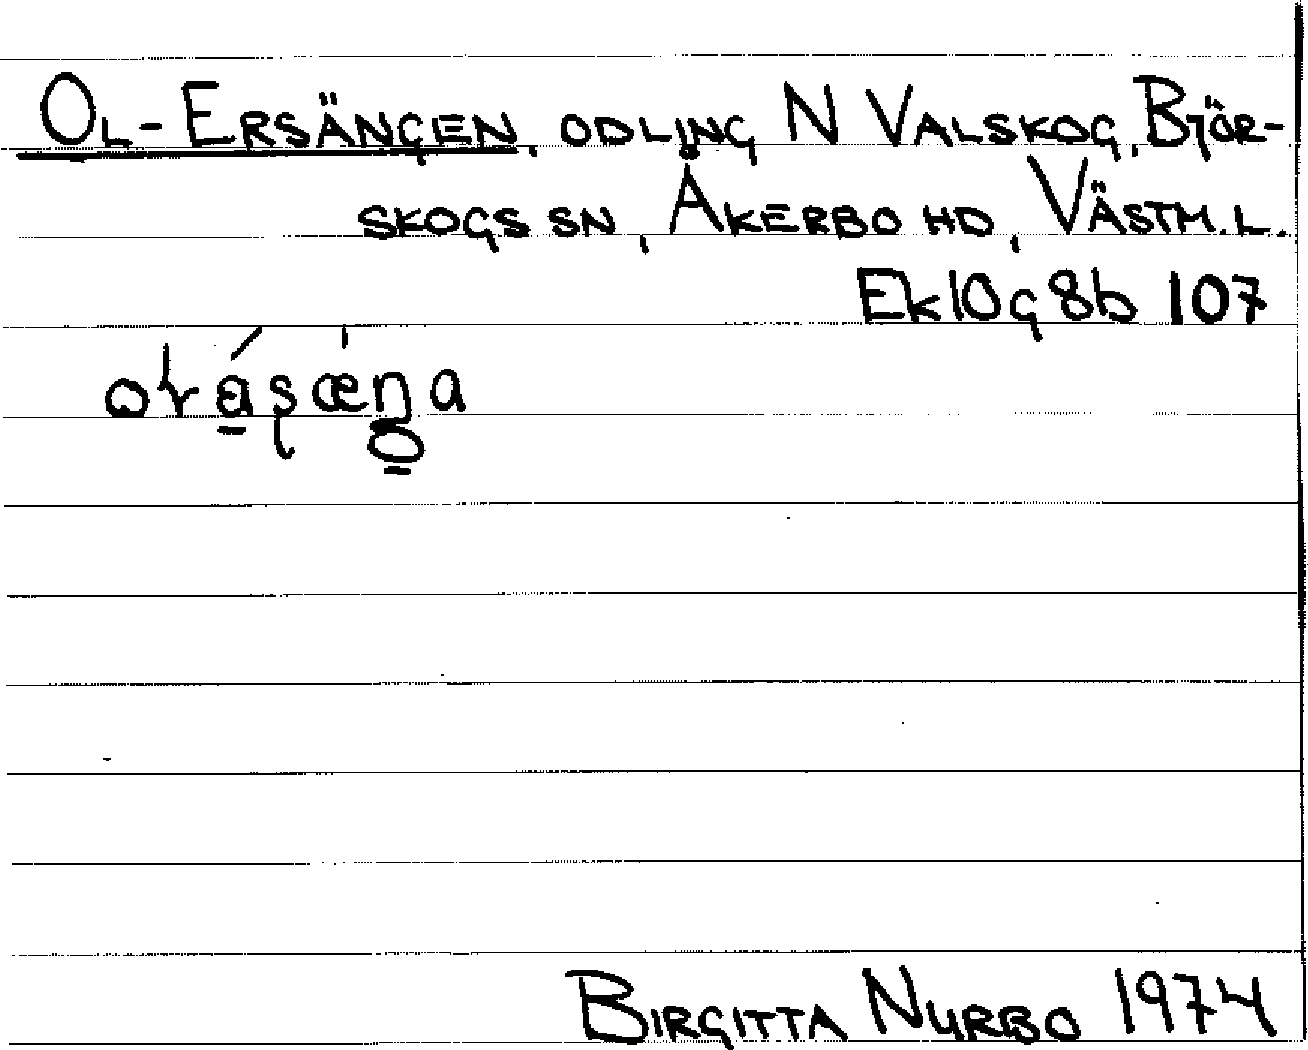 OL-ERSÄNGEN, ODLING N VALSKOG, BJÖR-
SKOGS SN, ÅKERBO HD, VÄSTM.L.
Ek 10g 8b 107
BIRGITTA NYRBO 1974